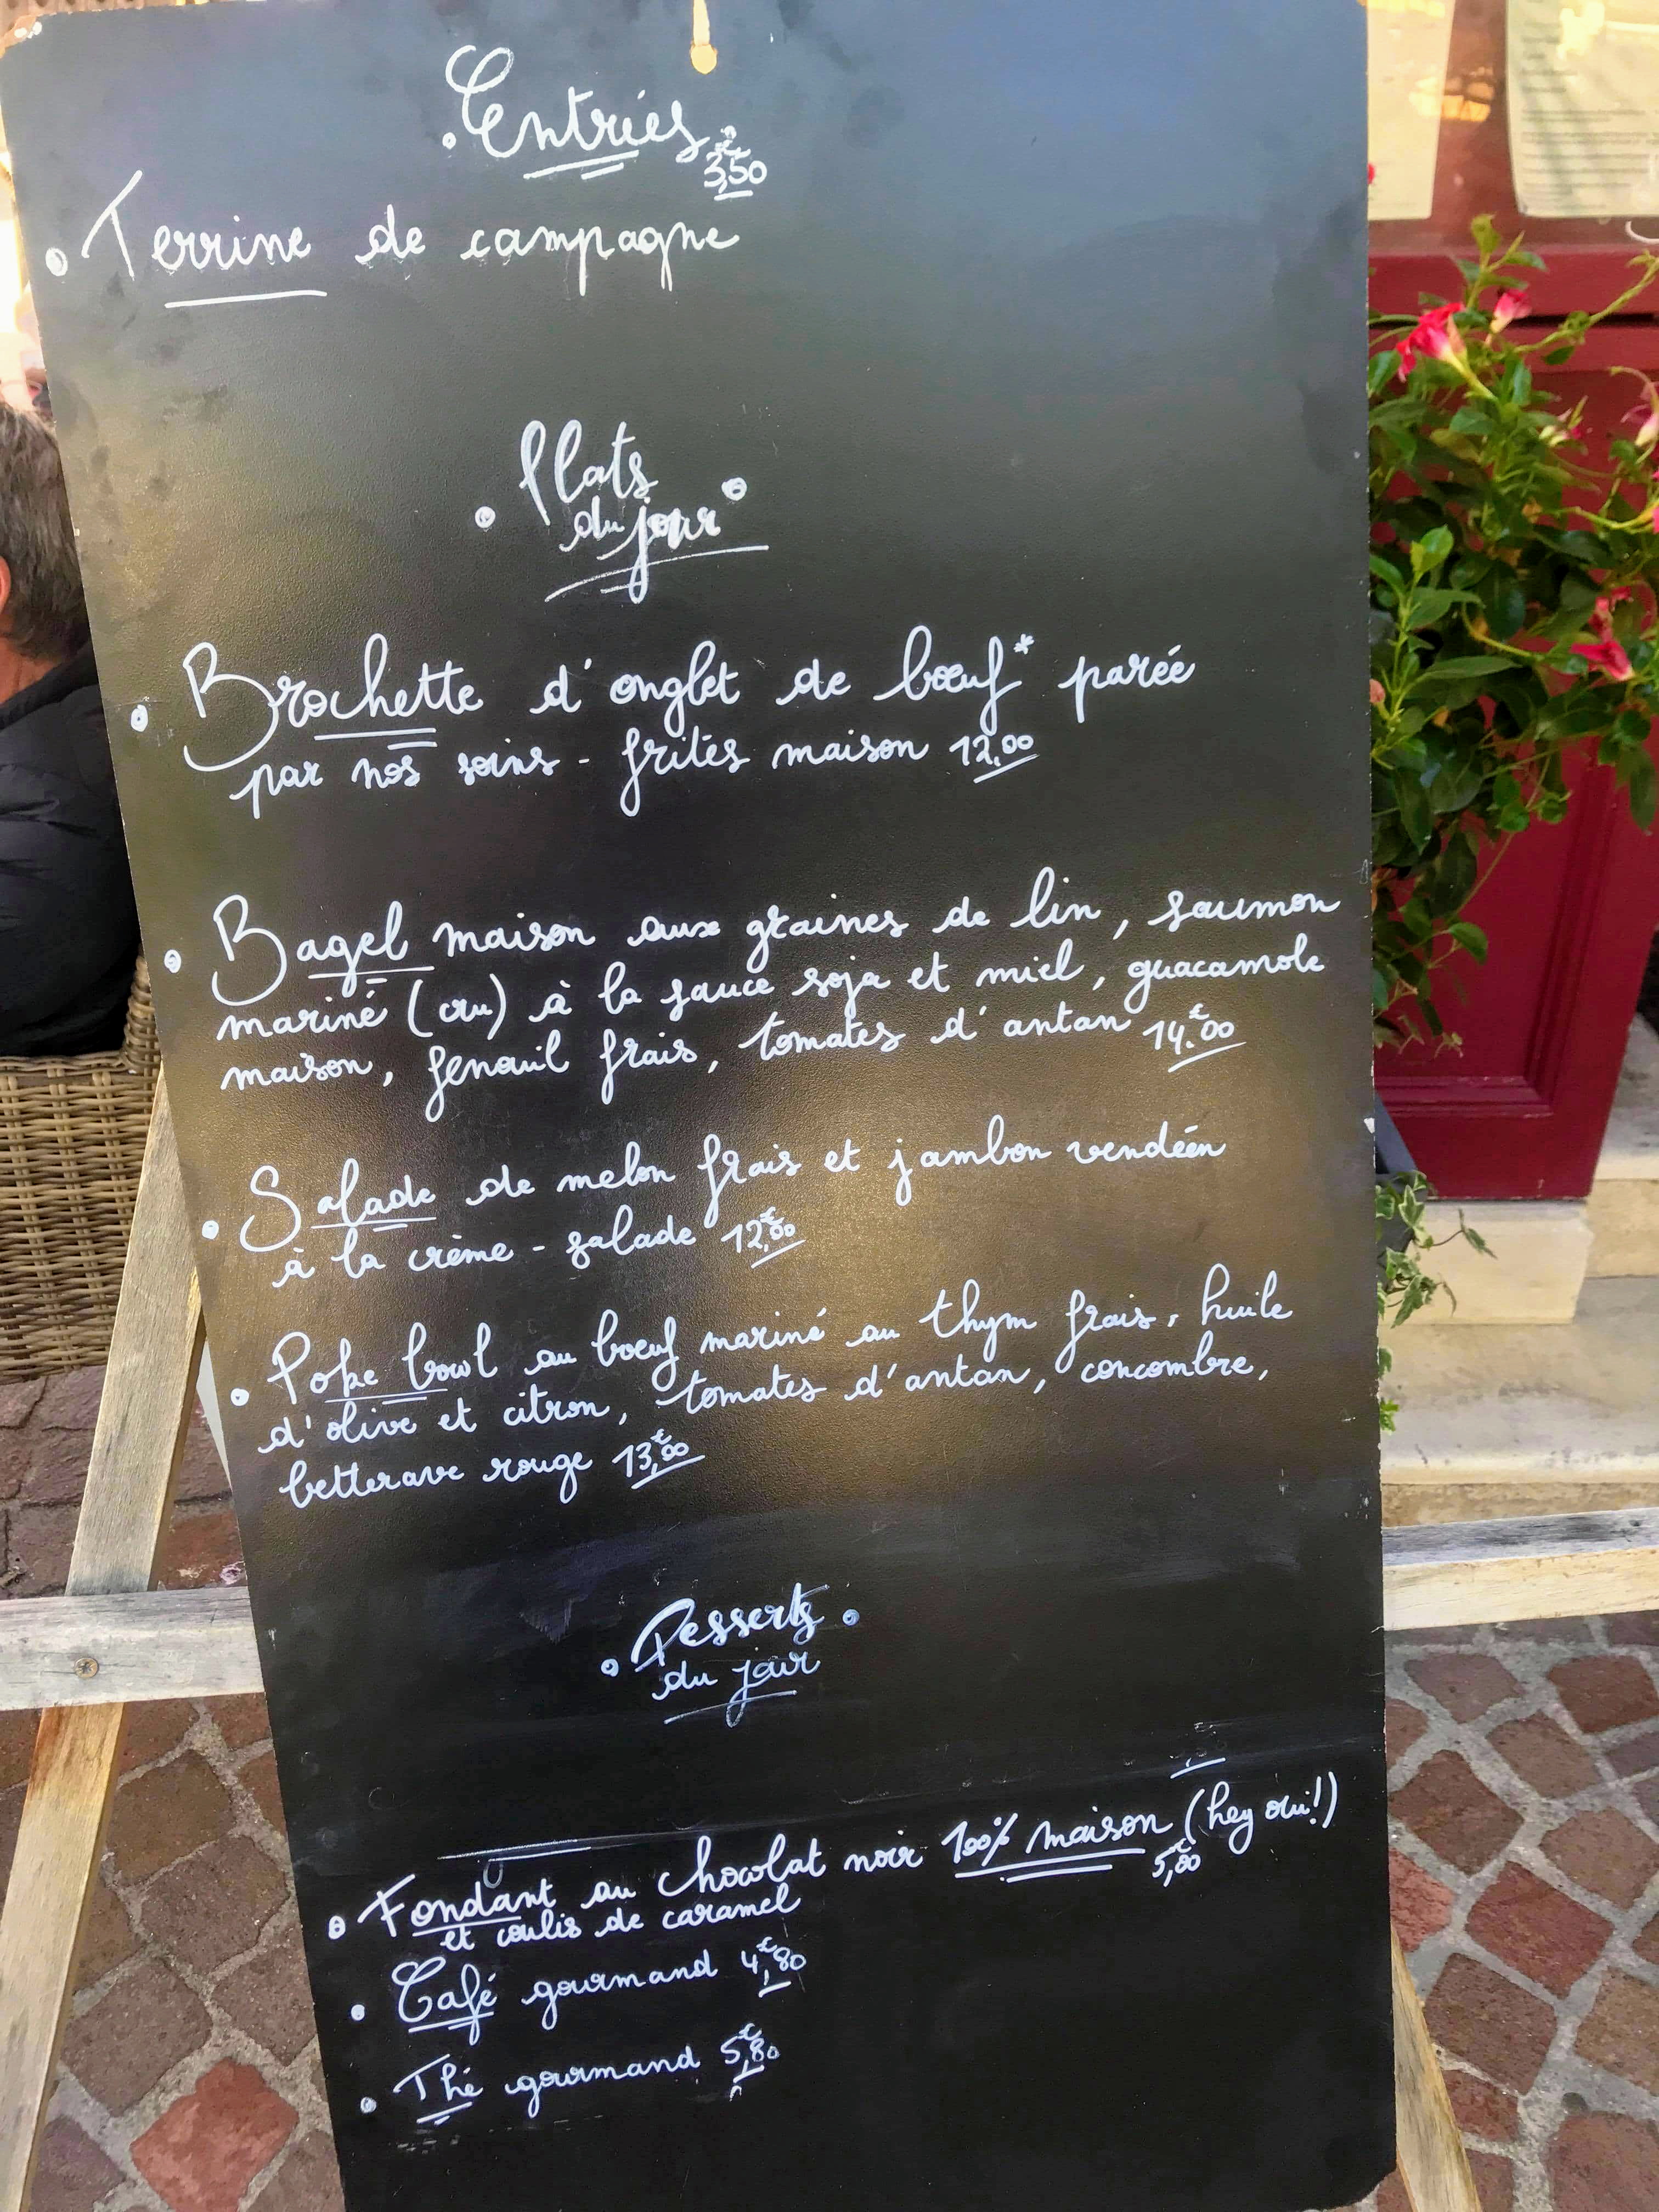 Entrées
3,50€
Terrine de campagne
Plats
du jour
Brochette d'onglet de bœuf* parée
par nos soins - frites maison 12,00
Bagel maison aux graines de lin, saumon
mariné (cru) à la sauce soja et miel, guacamole
maison, fenouil frais, tomates d'antan 14,€00
Salade de melon frais et jambon vendéen
à la crème - salade 12,€00
Poke bowl au bœuf mariné au thym frais, huile
d'olive et citron, tomates d'antan, concombre,
betterave rouge 13,€00
Desserts
du jour
Fondant au chocolat noir 100% maison (hey oui!)
et coulis de caramel
Café gourmand 4,€80
Thé gourmand 5,€80